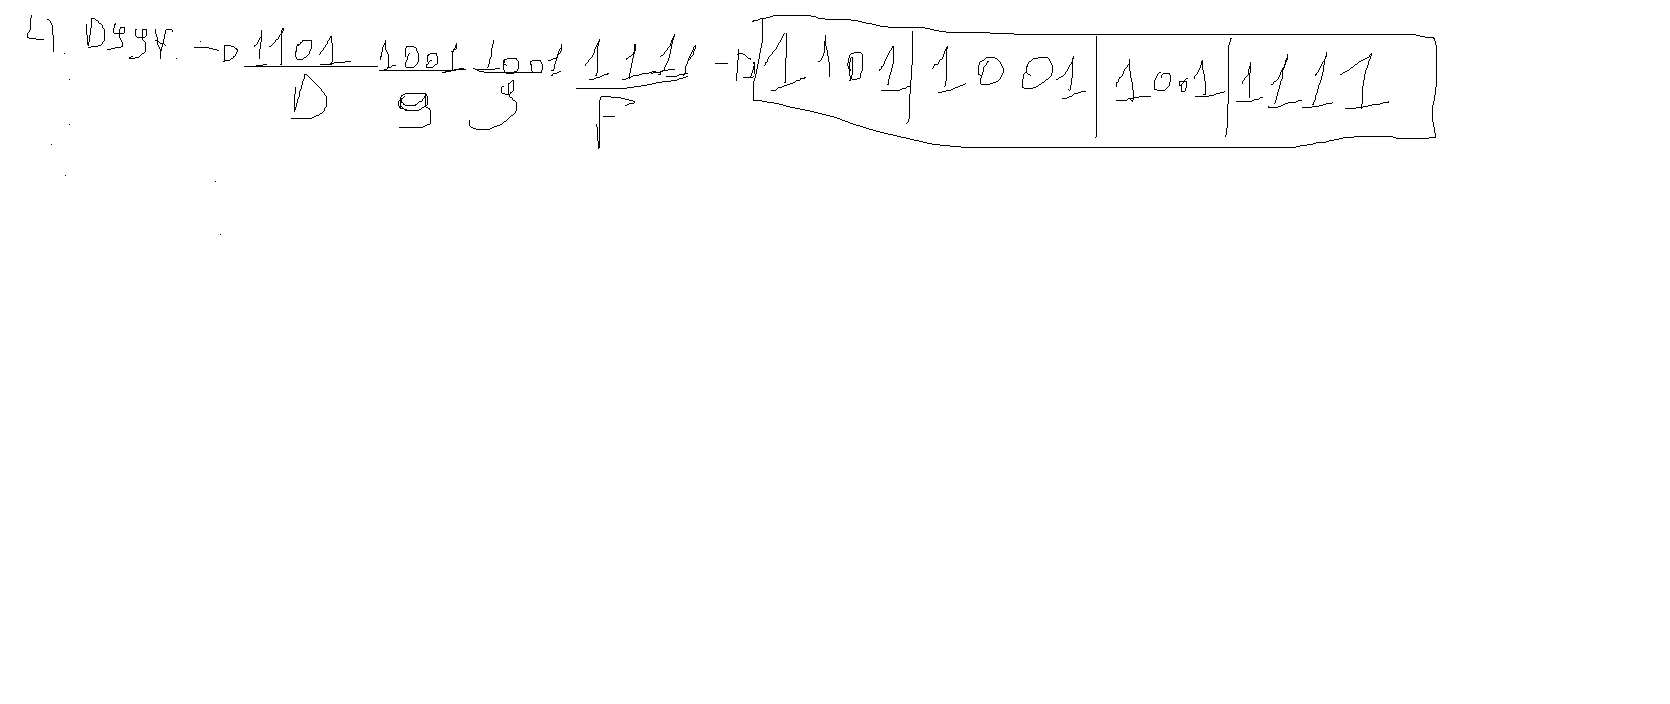 4. D99F. → 1101 1001 1001 1111 → 1101 | 1001 | 1001 | 1111
D 9 9 F